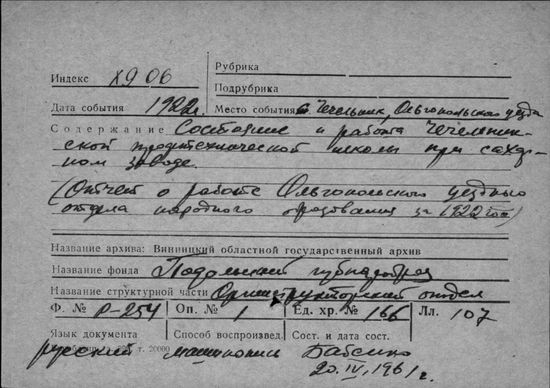 Рубрика
Индекс ХЯ 06
Подрубрика
Дата события 1922г.
Место события с. Чечельник, Ольгопольского уезда
Содержание Состояние и работа Чечельниц-
кой технической школы при сахар-
ном заводе.
(Отчет о работе Ольгопольского уездного
отдела народного образования за 1922 год)
Название архива: Винницкий областной государственный архив
Название фонда Подольский губнаробраз
Название структурной части отдел
Ф. № Р-254 Оп. № 1 Ед. хр. № 166 Лл. 107
Язык документа Способ воспроизвед. Сост. и дата сост.
т. 20000
русский машинопись Бабенко
20.IV.1961г.